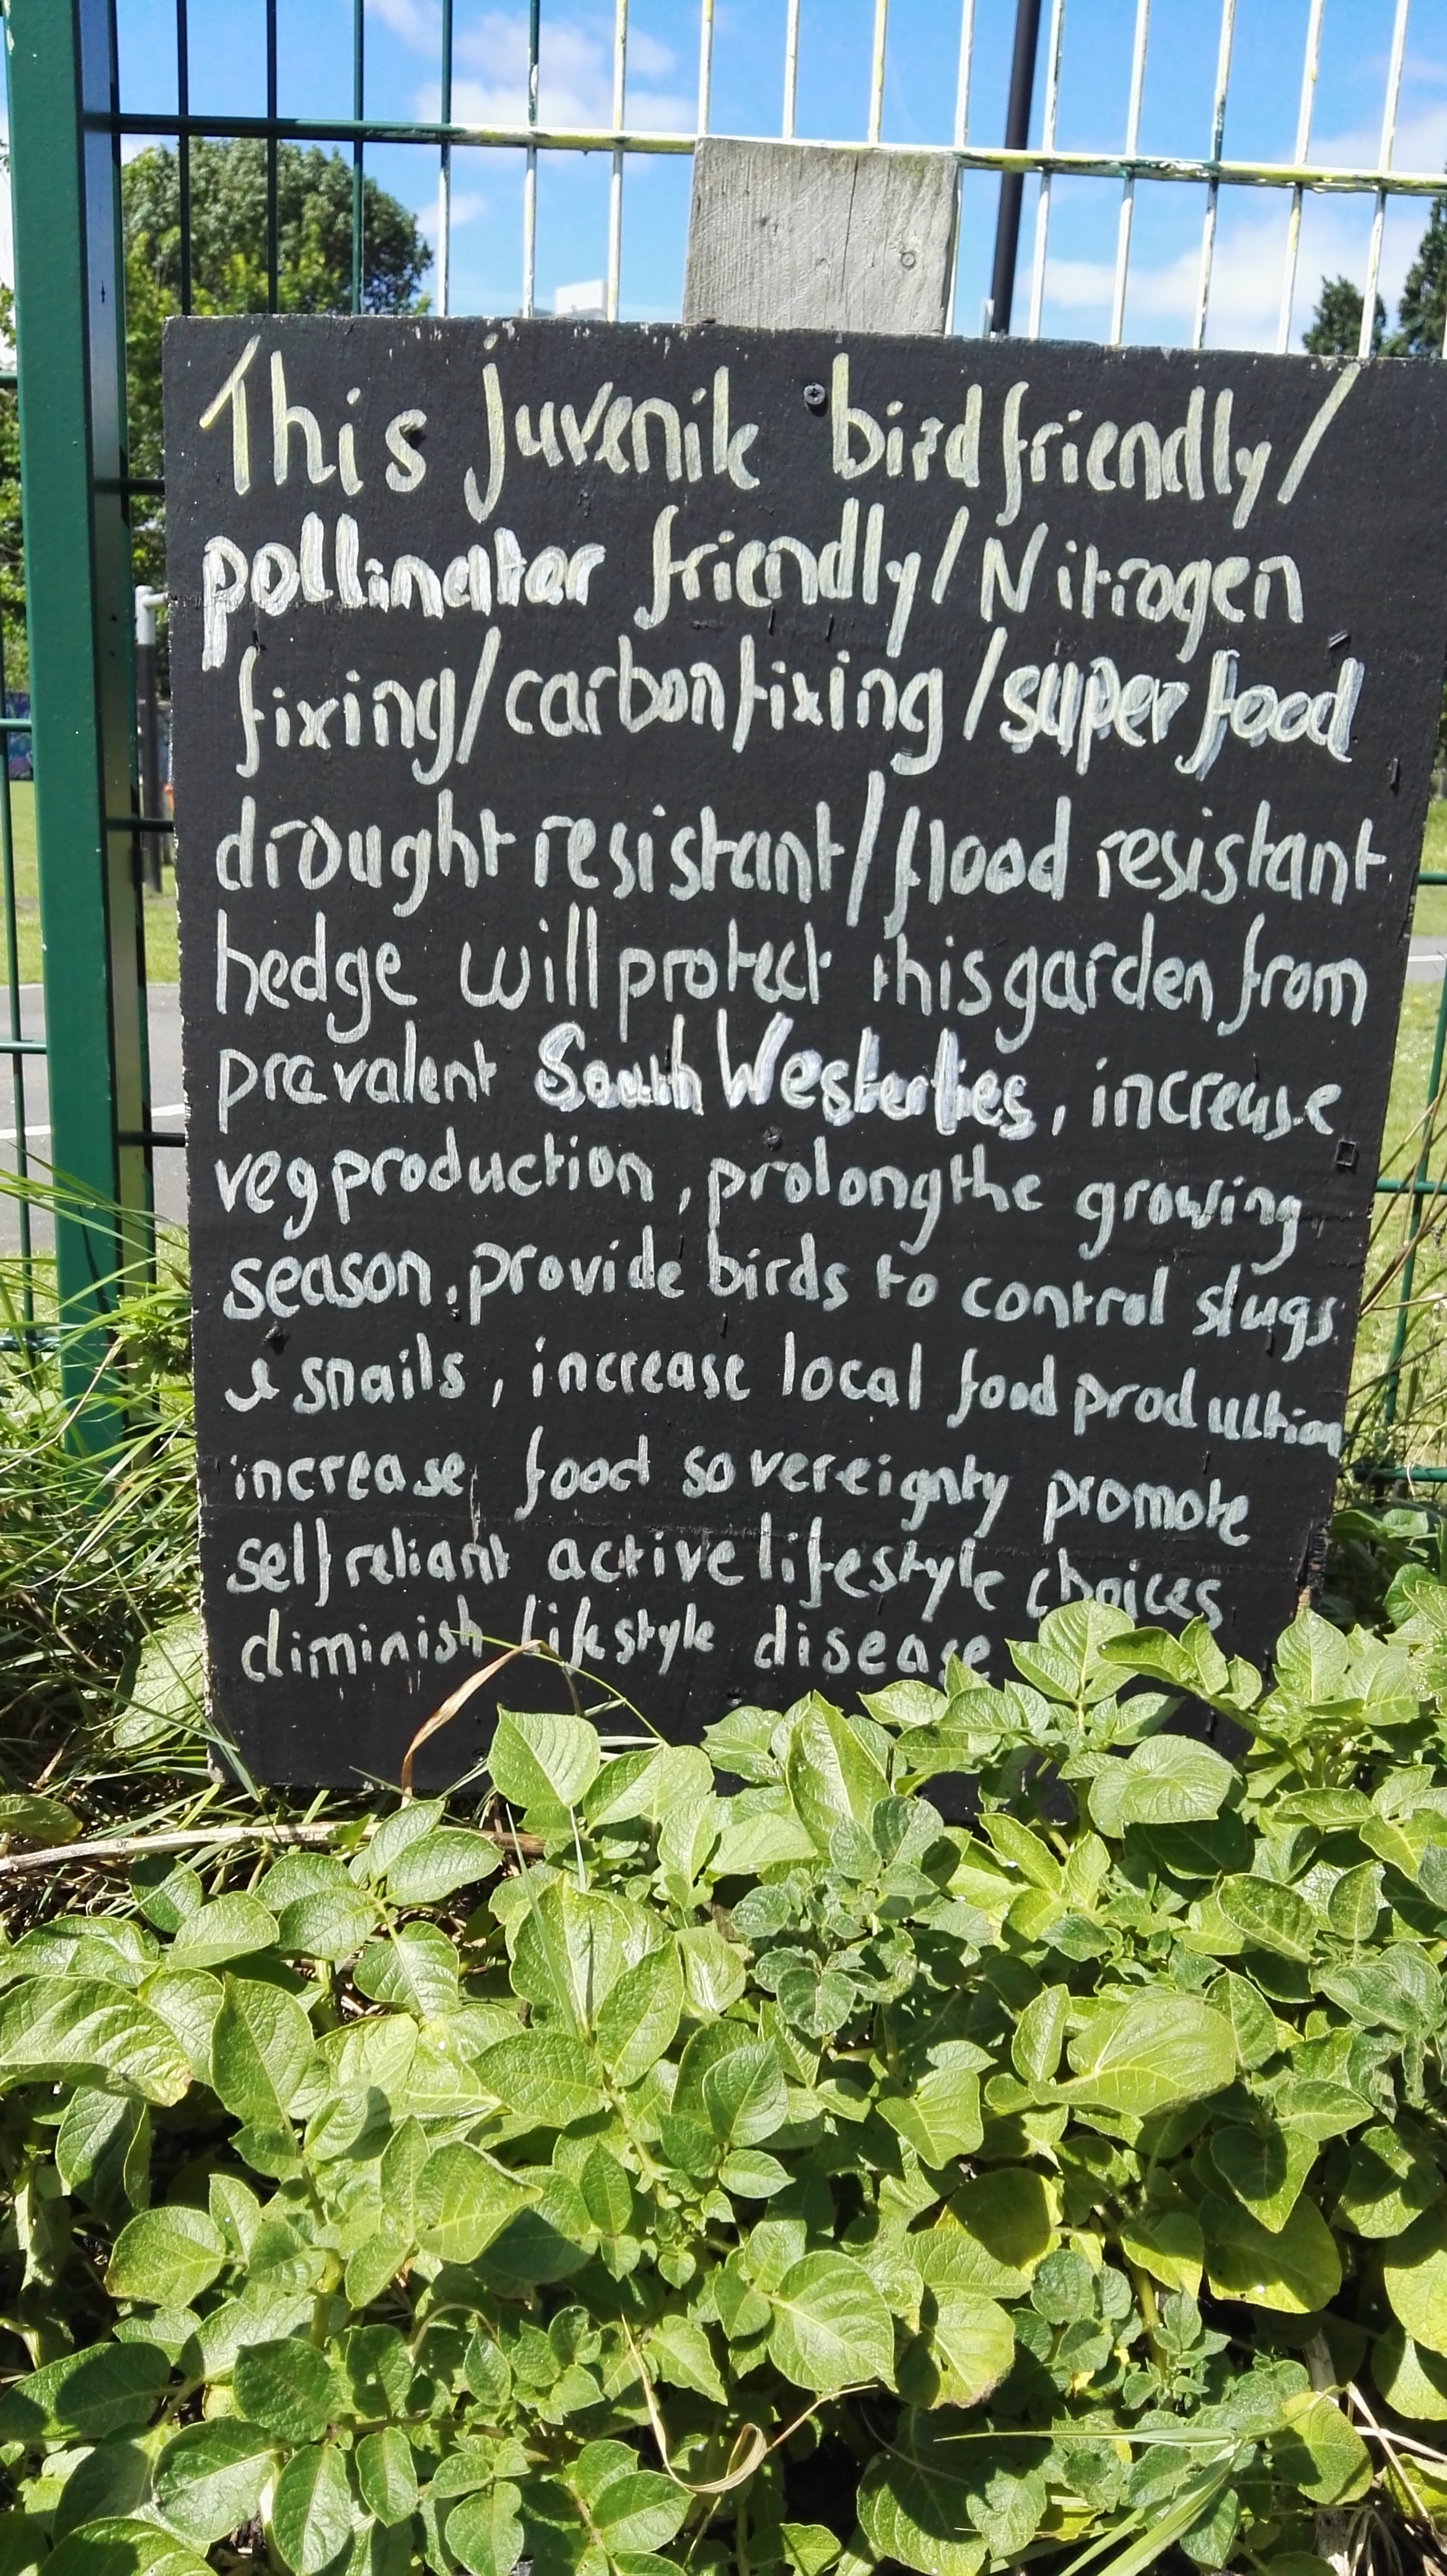 This juvenile bird friendly/
pollinator friendly/Nitrogen
fixing/carbon fixing/super food
drought resistant/flood resistant
hedge will protect this garden from
prevalent South Westerlies, increase
veg production, prolong the growing
season, provide birds to control slugs
& snails, increase local food production
increase food sovereignty promote
self reliant active lifestyle choices
diminish lifestyle disease